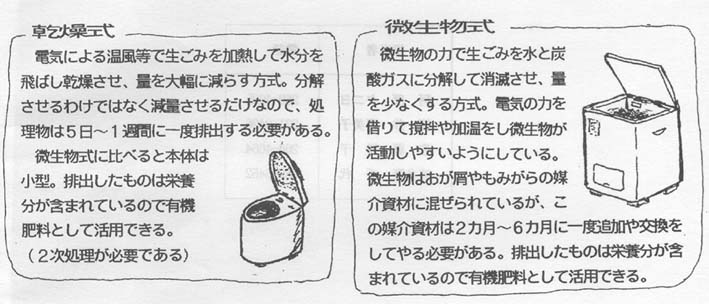 乾燥式
電気による温風等で生ごみを加熱して水分を
飛ばし乾燥させ、量を大幅に減らす方式。分解
させるわけではなく減量させるだけなので、処
理物は５日～１週間に一度排出する必要がある。
微生物式に比べると本体は
小型。排出したものは栄養
分が含まれているので有機
肥料として活用できる。
（２次処理が必要である）
微生物式
微生物の力で生ごみを水と炭
酸ガスに分解して消滅させ、量
を少なくする方式。電気の力を
借りて撹拌や加温をし微生物が
活動しやすいようにしている。
微生物はおが屑やもみがらの媒
介資材に混ぜられているが、こ
の媒介資材は２カ月～６カ月に一度追加や交換を
してやる必要がある。排出したものは栄養分が含
まれているので有機肥料として活用できる。